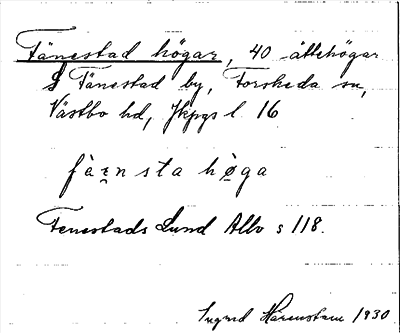 Fänestad högar, 40 ättehögar
S Fänestad by, Forsheda sn,
Västbo hd, Jkpgs l. 16
fὰε̱n sta hø̱ga
Fenestads Lund Allvo s 118.
Ingrid Härenstam 1930